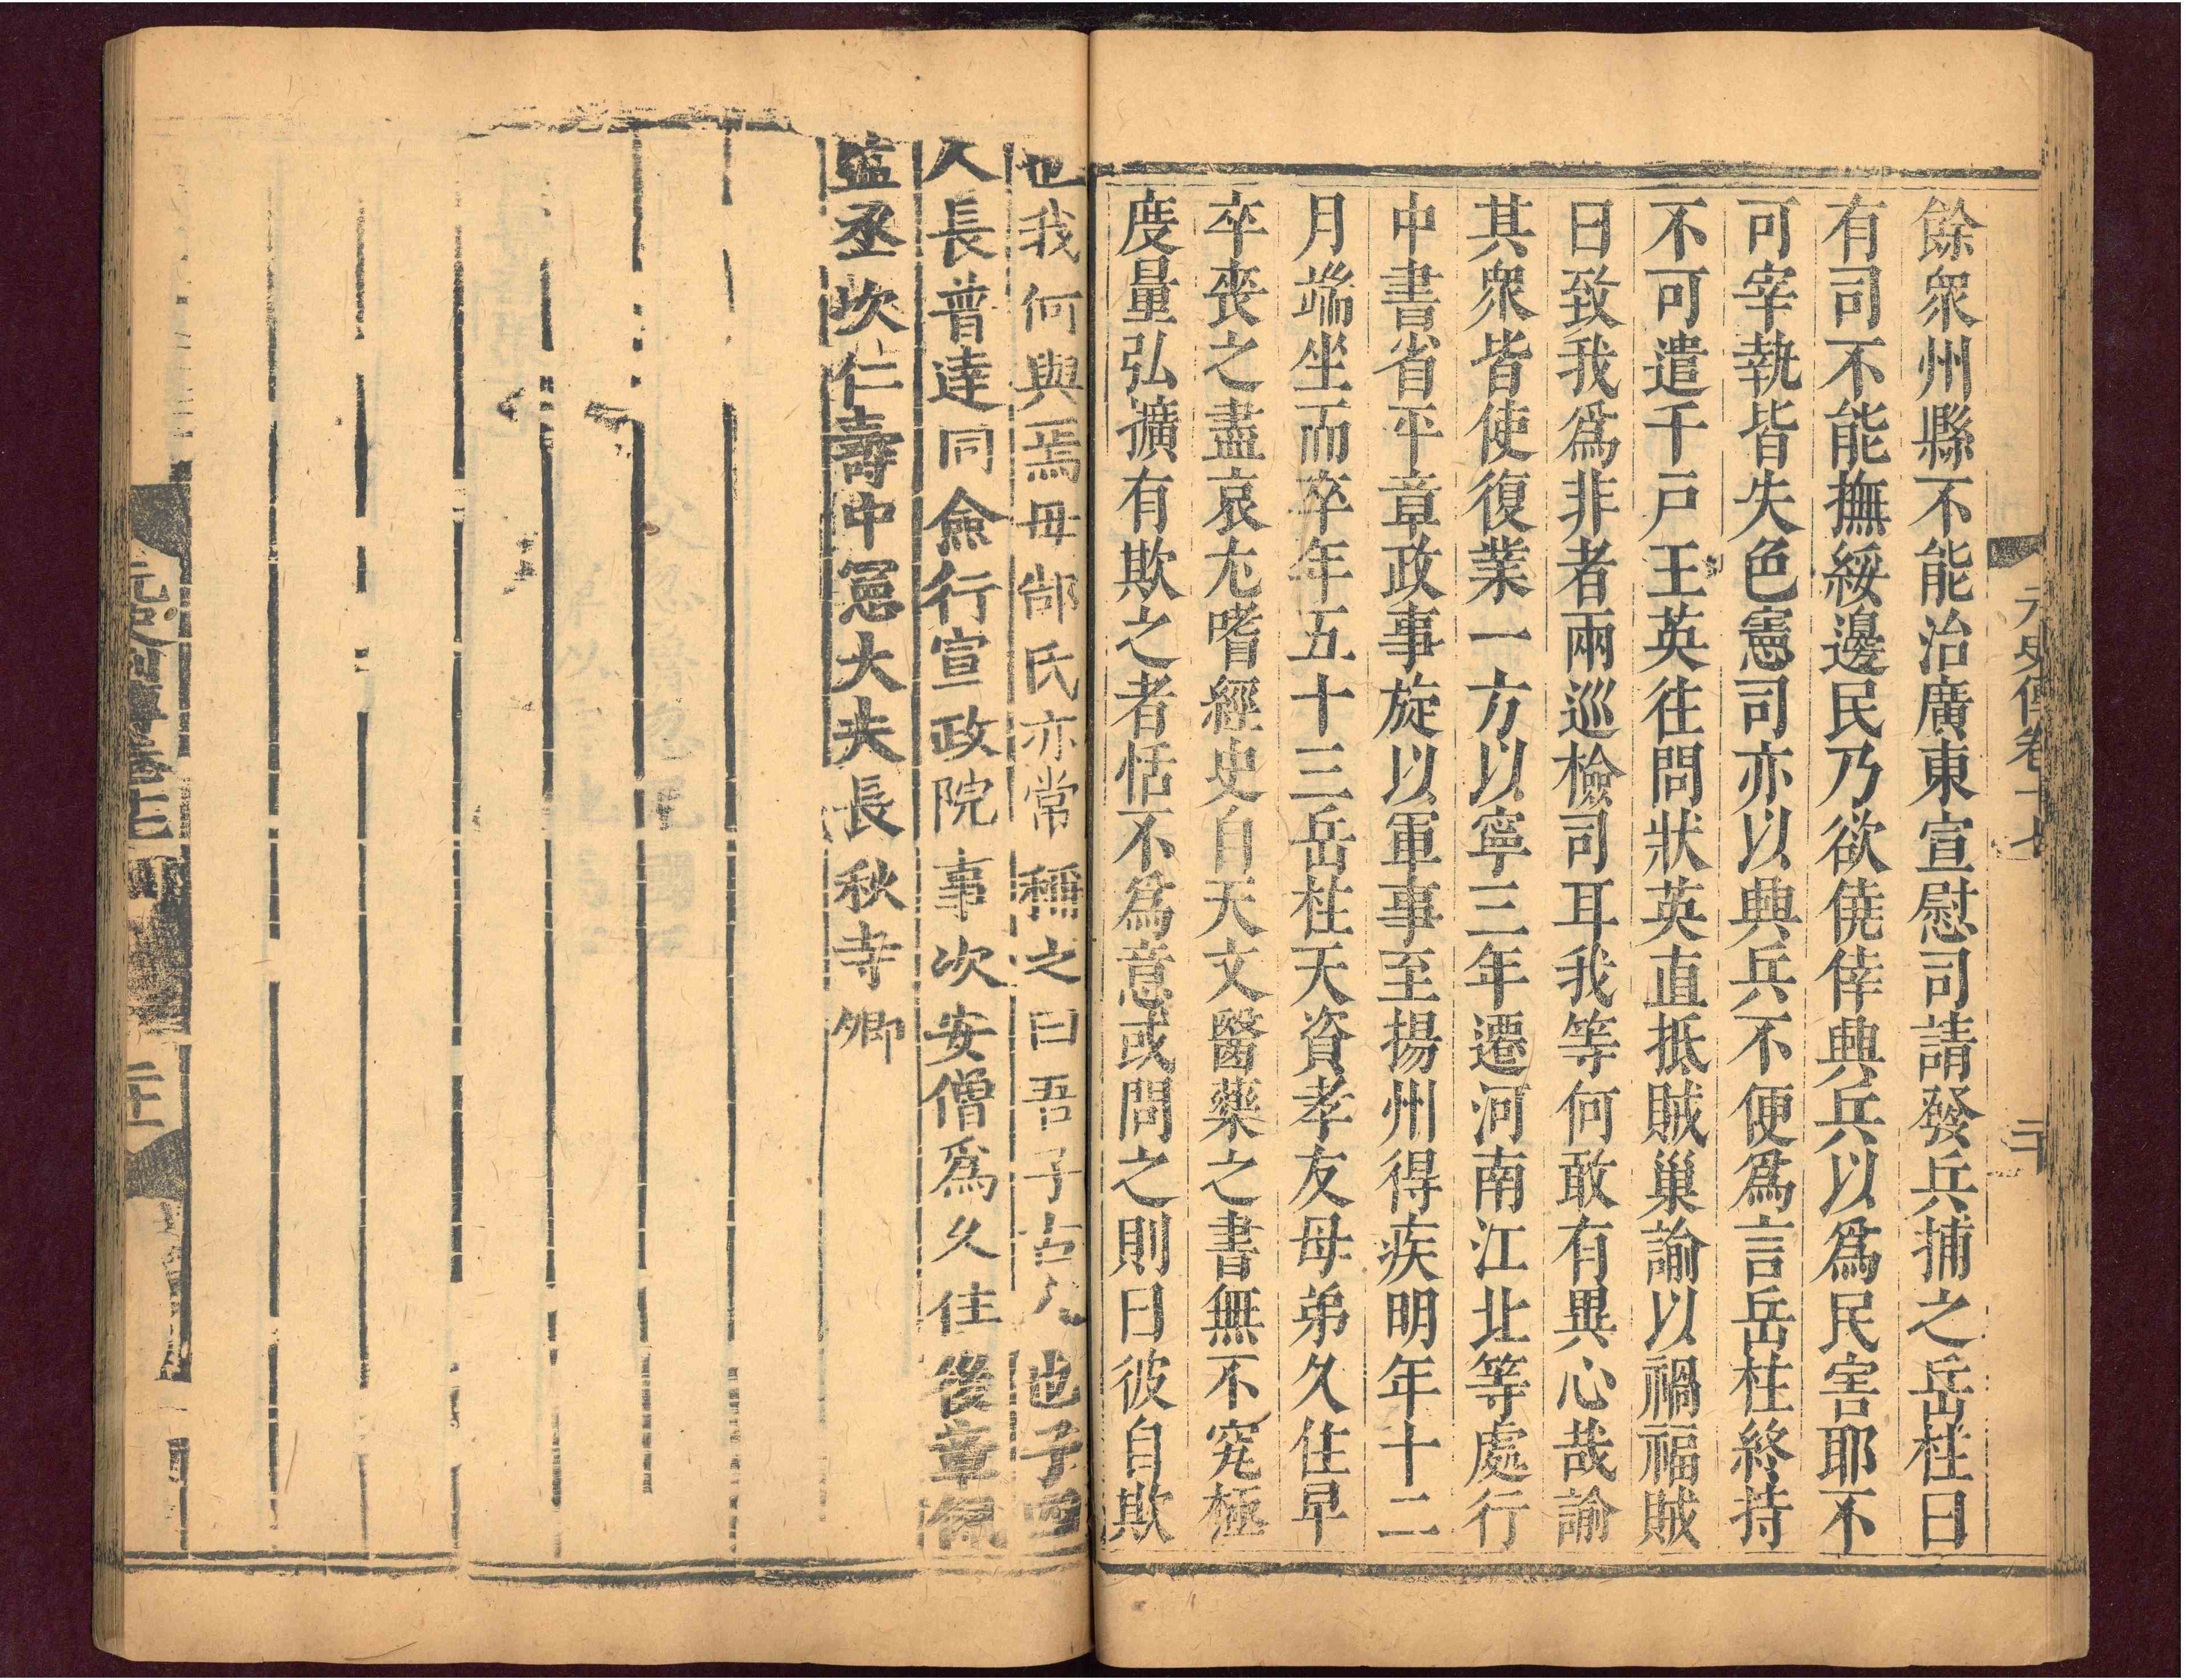 元史傳卷十七
二十
餘衆州縣不能治廣東宣慰司請發兵捕之岳柱曰
有司不能撫綏邊民乃欲僥倖興兵以爲民害耶不
可宰執皆失色憲司亦以興兵不便爲言岳柱終持
不可遣千戸王英往問狀英直抵賊巢諭以禍福賊
曰致我爲非者兩巡檢司耳我等何敢有異心哉諭
其衆皆使復業一方以寧三年遷河南江北等處行
中書省平章政事旋以軍事至揚州得疾明年十二
月端坐而卒年五十三岳柱天資孝友母弟久住早
卒喪之盡哀尤嗜經史自天文醫藥之書無不究極
度量弘擴有欺之者恬不爲意或問之則曰彼自欺
也我何與焉母郜氏亦常稱之曰吾子古人也子四
人長普達同僉行宣政院事次安僧爲久住後章佩
監丞次仁壽中憲大夫長秋寺卿
元史列傳卷十七
二十一